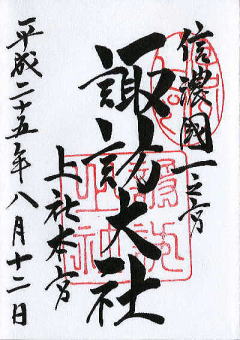 信濃國一之宮
諏訪大社
上社本宮
平成二十五年八月十二日